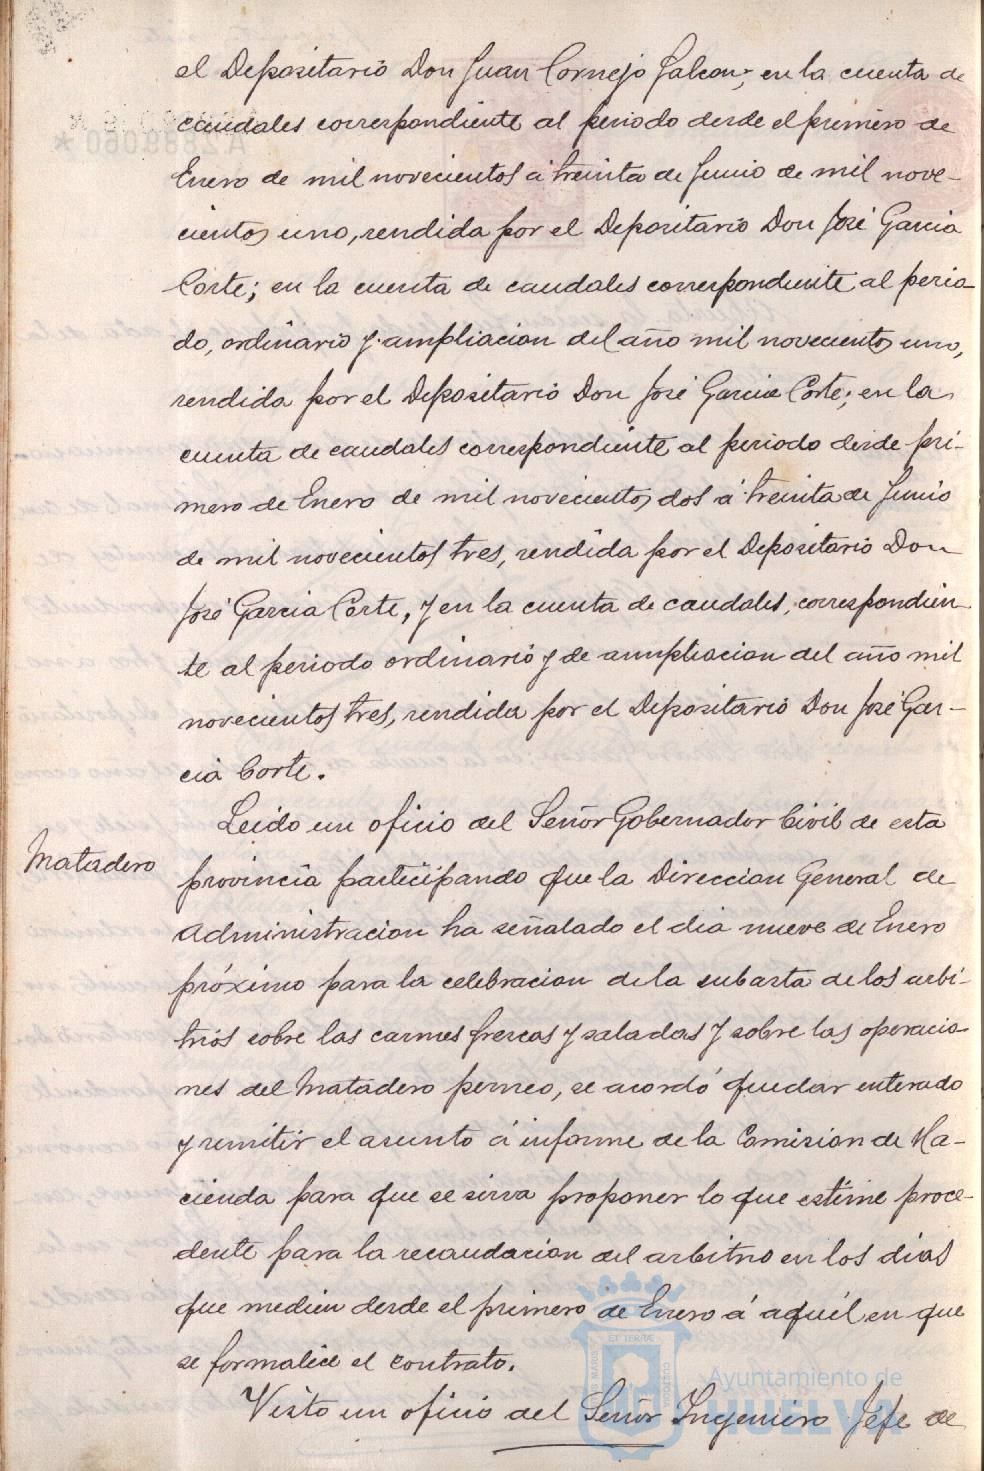 el Depositario Don Juan Cornejo Falcon; en la cuenta de
caudales correspondiente al periodo desde el primero de
Enero de mil novecientos á treinta de Junio de mil nove-
cientos uno, rendida por el Depositario Don José Garcia
Corte; en la cuenta de caudales correspondiente al perio-
do, ordinario y ampliacion del año mil novecientos uno,
rendida por el Depositario Don José Garcia Corte; en la
cuenta de caudales correspondiente al periodo desde pri-
mero de Enero de mil novecientos dos á treinta de Junio
de mil novecientos tres, rendida por el Depositario Don
José Garcia Corte, y en la cuenta de caudales, correspondien-
te al periodo ordinario y de ampliacion del año mil
novecientos tres, rendida por el Depositario Don José Gar-
cia Corte.
Leido un oficio del Señor Gobernador Civil de esta
Matadero
provincia participando que la Direccion General de
Administracion ha señalado el dia nueve de Enero
próximo para la celebracion de la subasta de los arbi-
trios sobre las carnes frescas y saladas y sobre las operacio-
nes del Matadero perneo, se acordó quedar enterado
y remitir el asunto á informe de la Comision de Ha-
cienda para que se sirva proponer lo que estime proce-
dente para la recaudacion del arbitrio en los dias
que medien desde el primero de Enero á aquél en que
se formalice el contrato.
Visto un oficio del Señor Ingeniero Jefe de
Ayuntamiento de
HUELVA
A2889060 *